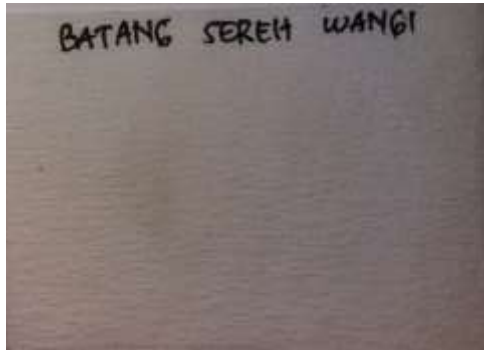 BATANG SEREH WANGI